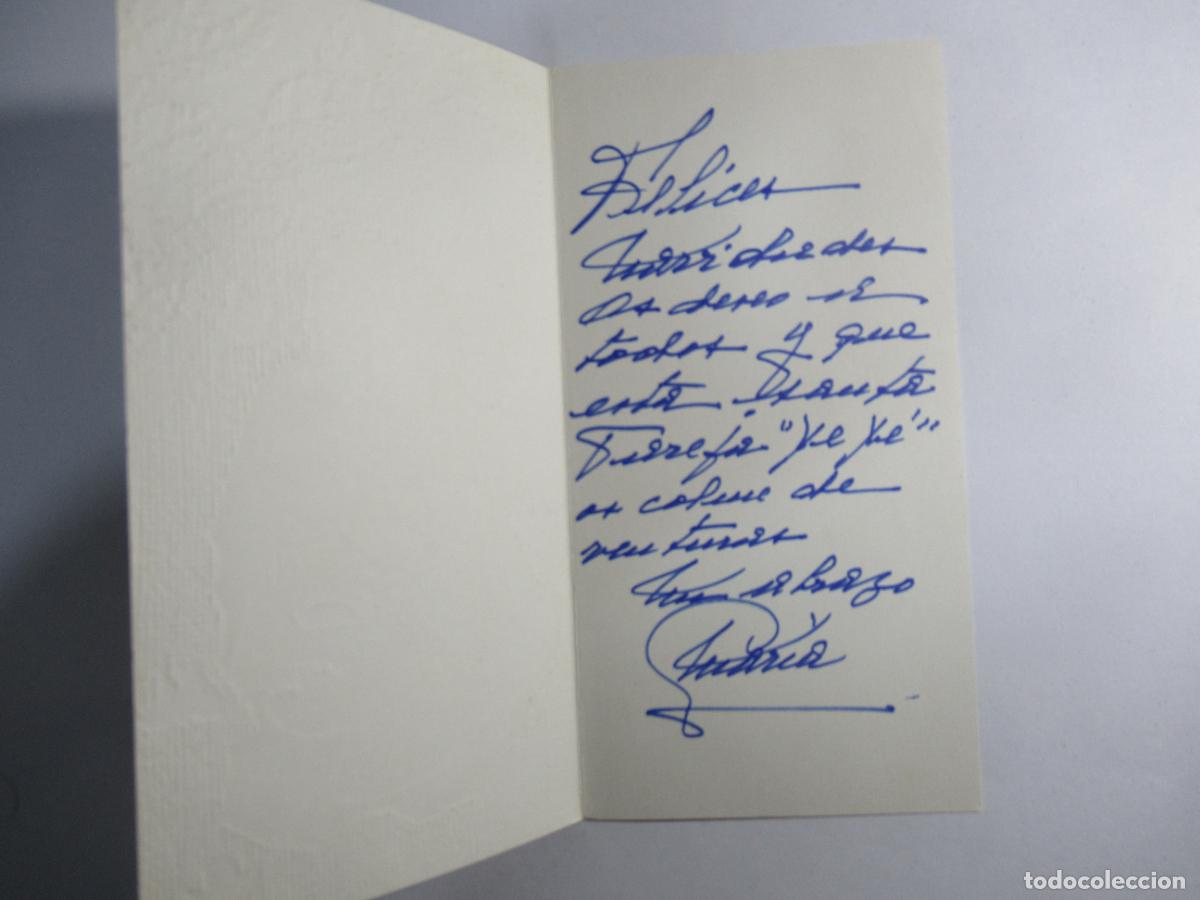 Felices
Navidades
os deseo a
todos y que
esta santa
Pareja "Ye Yé"
os colme de
venturas
Un abrazo
María
todocoleccion